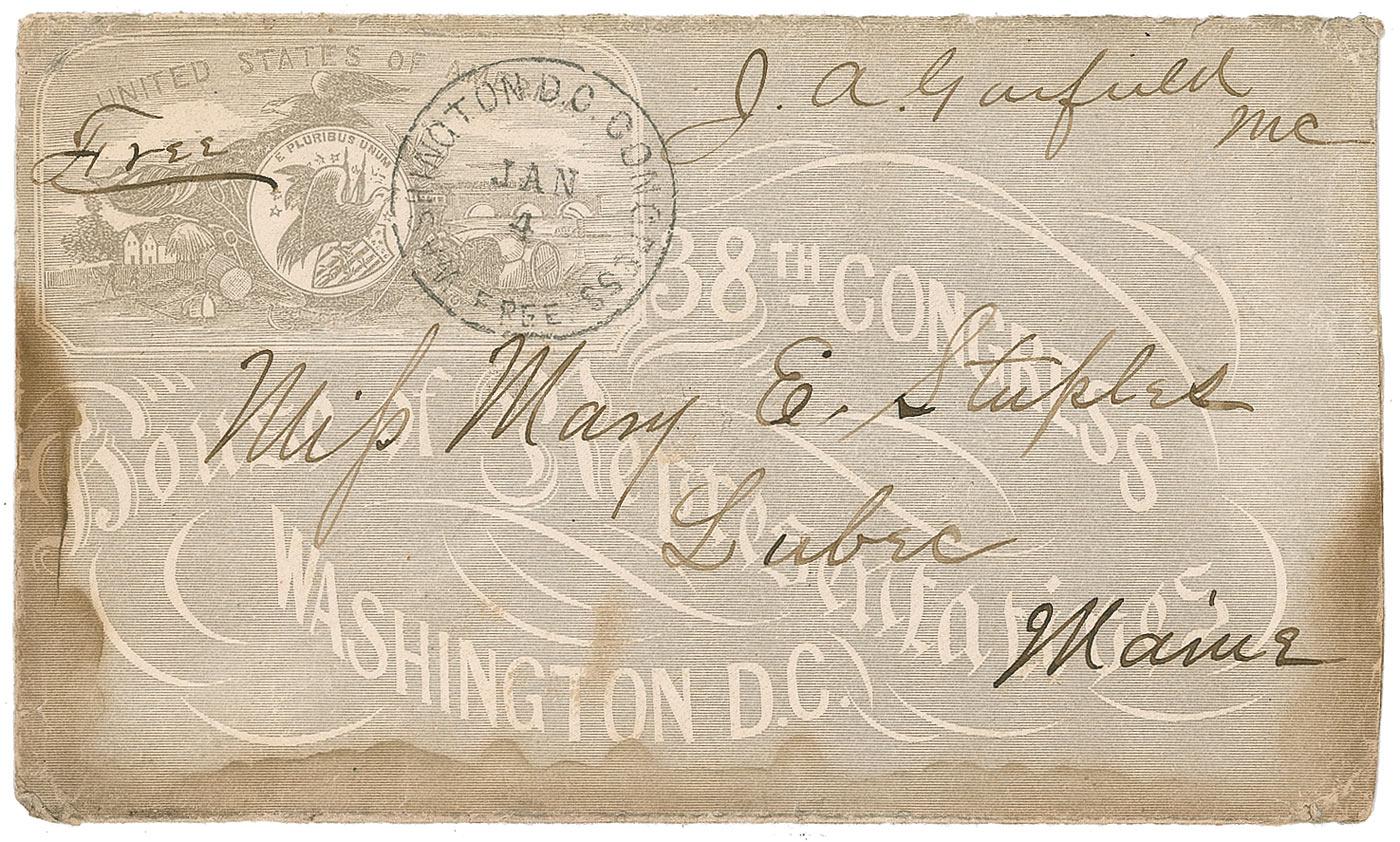 UNITED STATES OF AM
Free
E PLURIBUS UNUM
WASHINGTON D.C. CONGRESS
JAN
4
FREE
J. A. Garfield
MC
38TH CONGRESS
House of Representatives
WASHINGTON D.C.
Miſs Mary E. Staples
Lubec
Maine